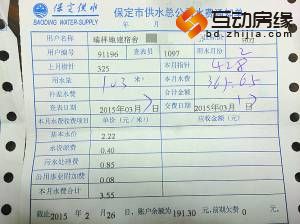 互动房缘
bd.zhijia.com
保定供水
BAODING WATER SUPPLY
保定市供水总公司水费通知单
用户名称 瑞祥地建宿舍
用户编号 91196 查表员 1097 用水月份 2
上月指针 325 本月指针 428
用水量 103 本月水费 365.65
补差水费 合计金额
查表日期 2015年03月 日 交费日期 2015年03月 日
本月水费收费项目 单价（元/米） 应收金额（元）
基本水价 2.22
水资源费 0.40
污水处理费 0.85
公用事业附加费 0.08
本月水费合计 3.55
截止2015 年 2 月 26 日，账户余额为191.30 元,前期欠费 0 元。